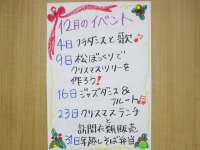 12月のイベント
4日 フラダンスと歌
9日 松ぼっくりで
クリスマスツリーを
作ろう!
16日 ジャズダンス&
フルート
23日 クリスマスランチ
と
訪問衣類販売
31日 年越しそば弁当